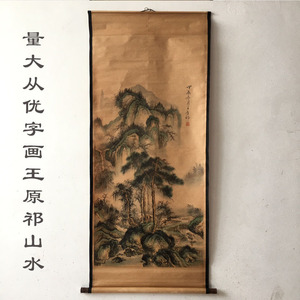 量大从优字画王原祁山水